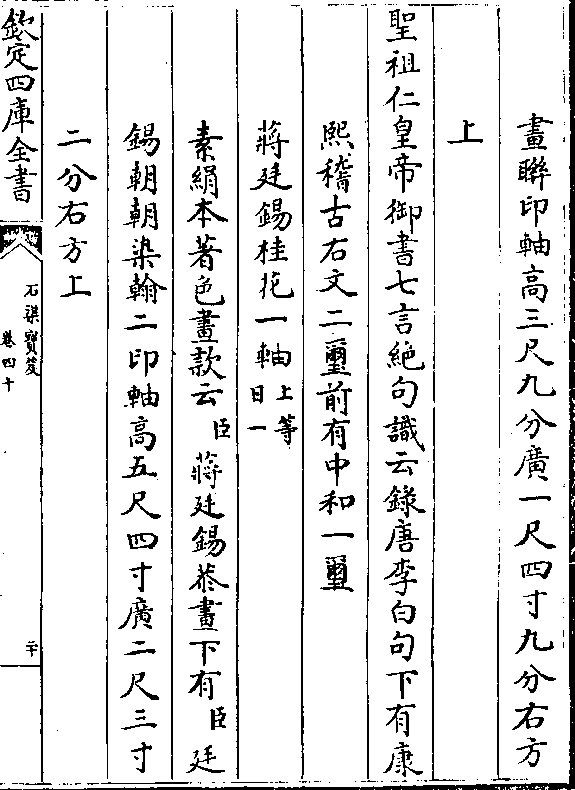 畫聨印軸高三尺九分廣一尺四寸九分右方
上
聖祖仁皇帝御書七言絶句識云錄唐李白句下有康
熙稽古右文二璽前有中和一璽
蔣廷錫桂花一軸上等日一
素絹本著色畫款云臣蔣廷錫恭畫下有臣廷
錫朝朝染翰二印軸高五尺四寸廣二尺三寸
二分右方上
欽定四庫全書
石渠寳笈
卷四十
二十